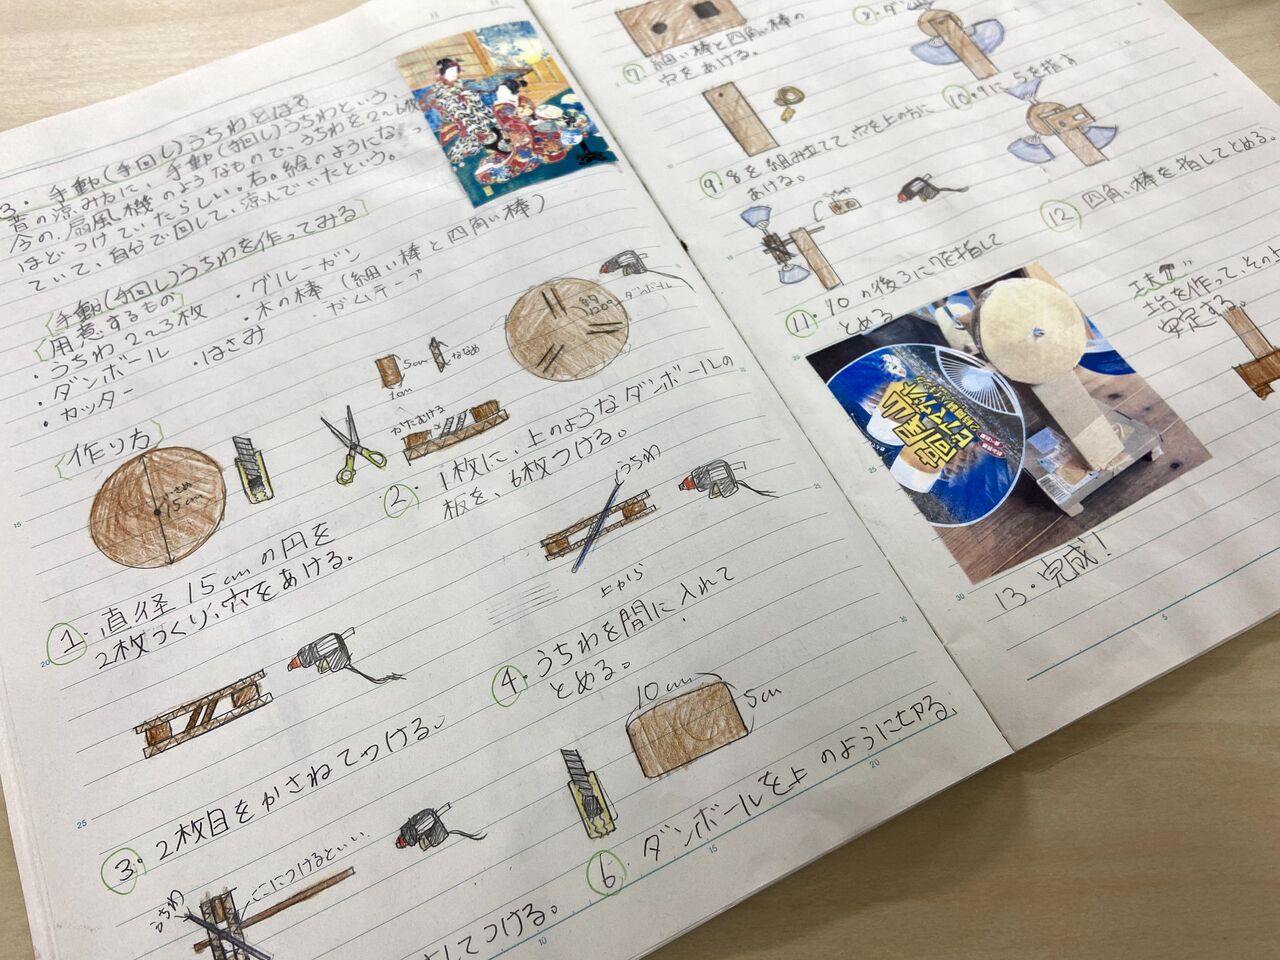 3. 手動(手回し)うちわとは?
昔の涼み方に、手動(手回し)うちわという、
今の、扇風機のようなもので、うちわを2〜6枚
ほどつけていたらしい。右の絵のようになっ
ていて、自分で回して、涼んでいたという。
手動(手回し)うちわを作ってみる
用意するもの
・うちわ2〜3枚 ・グルーガン
・ダンボール ・木の棒(細い棒と四角い棒)
・カッター ・はさみ ・ガムテープ
作り方
15cm
①. 直径15cmの円を
2枚つくり、穴をあける。
5cm
1cm
ななめ
約120°
ダンボール
かたむける
②. 1枚に、上のようなダンボールの
板を、6枚つける。
③. 2枚目をかさねてつける。
うちわ
上から
④. うちわを間に入れて
とめる。
うちわ
ここにつけるといい
してつける。
10cm
5cm
⑥. ダンボールを上のように切る。
⑦. 細い棒と四角い棒の
穴をあける。
⑨. 8を組み立てて、穴を上の方に
あける。
⑩. 9に5を指す
⑪. 10の後ろに7を指して
とめる
⑫ 四角い棒を指してとめる。
工夫
台を作って、その上
安定する。
高尾山
ビアマウント
13. 完成!